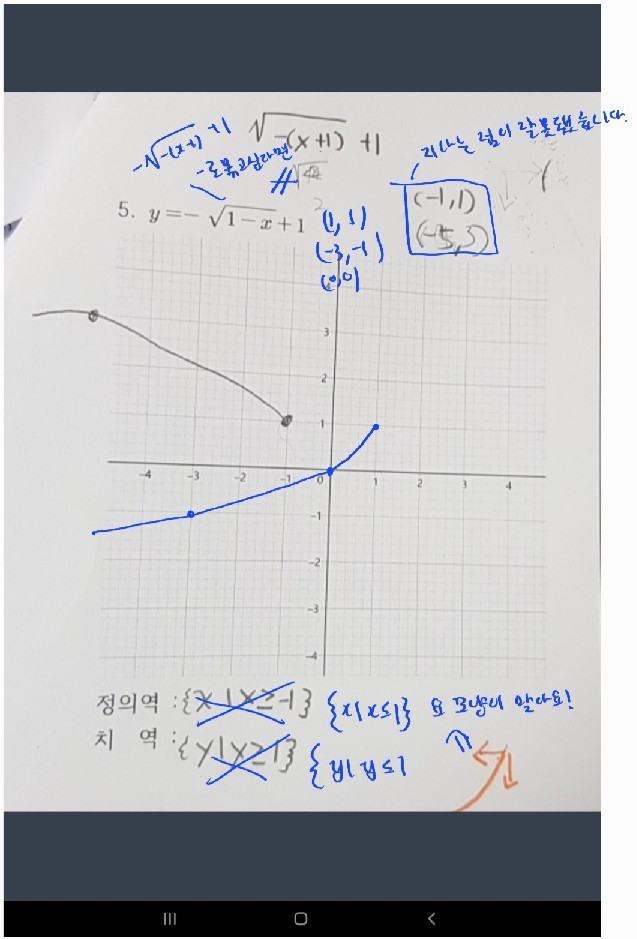 -√-(x-1) +1
√-(x+1) +1
-로 묶고싶다면
지나는 점이 잘못됐습니다.
5. y=-√1-x+1
(1, 1)
(-3, -1)
(0, 0)
(-1, 1)
(-5, 3)
3
2
1
-4 -3 -2 -1 0 1 2 3 4
-1
-2
-3
-4
정의역 : {x|x≥-1} {x|x≤1} 요 모양이 맞아요!
치 역 : {y|x≥1} {y|y≤1